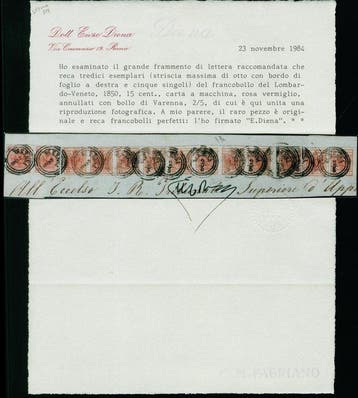 Dott. Enzo Diena
Via Crescenzio 19, Roma
23 novembre 1984
Ho esaminato il grande frammento di lettera raccomandata che
reca tredici esemplari (striscia massima di otto con bordo di
foglio a destra e cinque singoli) del francobollo del Lombar-
do-Veneto, 1850, 15 cent., carta a macchina, rosa vermiglio,
annullati con bollo di Varenna, 2/5, di cui è qui unita una
riproduzione fotografica. A mio parere, il raro pezzo è origi-
nale e reca francobolli perfetti: l'ho firmato "E.Diena". * *
All Eccelso I. R. Superiore
FABRIANO